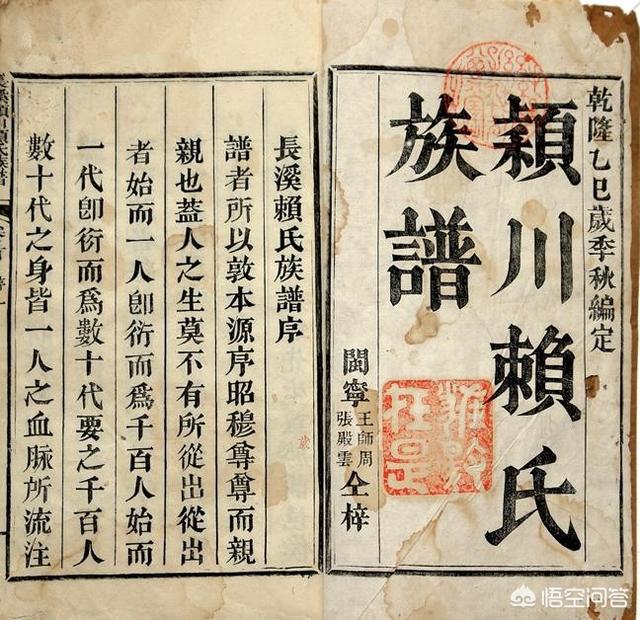 乾隆乙巳歲季秋編定
穎川賴氏
族譜
閩寧王師周張殿雲仝梓
長溪賴氏族譜序
譜者所以敦本源序昭穆尊尊而親
親也蓋人之生莫不有所從出從出
者始而一人卽衍而爲千百人始而
一代卽衍而爲數十代要之千百人
數十代之身皆一人之血脈所流注
悟空问答